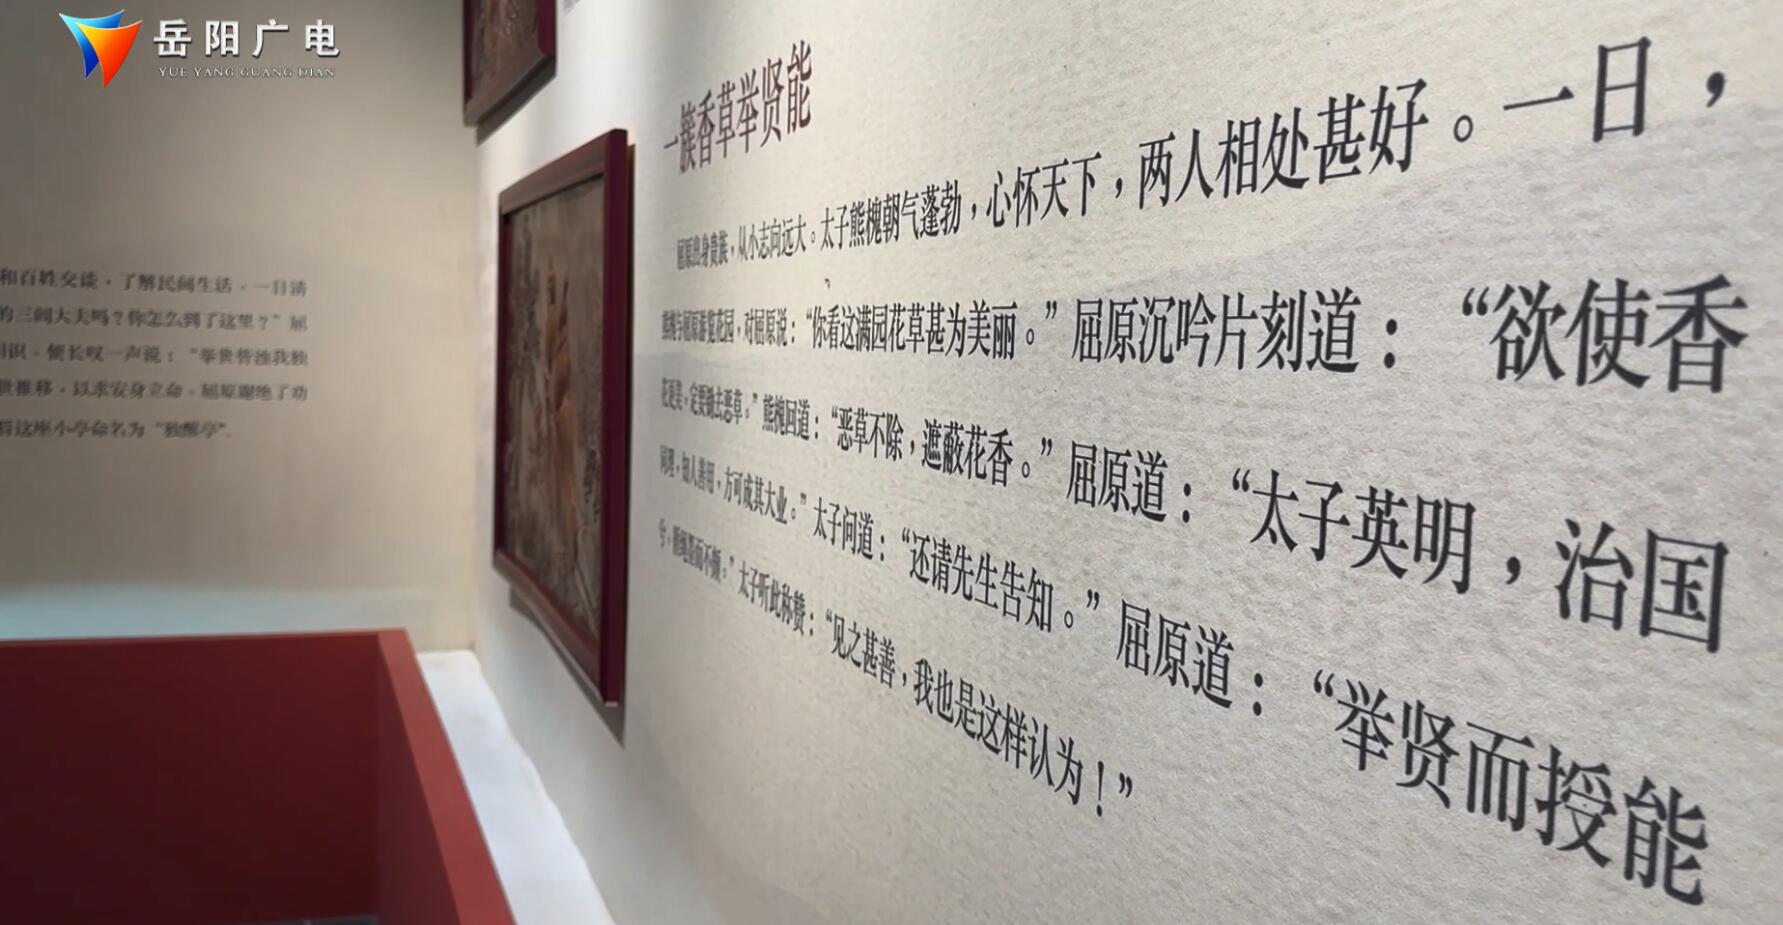 岳阳广电
YUE YANG GUANG DIAN
一簇香草举贤能
屈原出身贵族，从小志向远大。太子熊槐朝气蓬勃，心怀天下，两人相处甚好。一日，
熊槐与屈原游览花园，对屈原说：“你看这满园花草甚为美丽。”屈原沉吟片刻道：“欲使香
花更美，定要锄去恶草。”熊槐回道：“恶草不除，遮蔽花香。”屈原道：“太子英明，治国
同理，知人善用，方可成其大业。”太子问道：“还请先生告知。”屈原道：“举贤而授能
兮，循绳墨而不颇。”太子听此称赞：“见之甚善，我也是这样认为！”
和百姓交谈，了解民间生活。一日清
的三闾大夫吗？你怎么到了这里？”屈
相识。便长叹一声说：“举世皆浊我独
世推移，以求安身立命。屈原谢绝了功
将这座小亭命名为“独醒亭”。